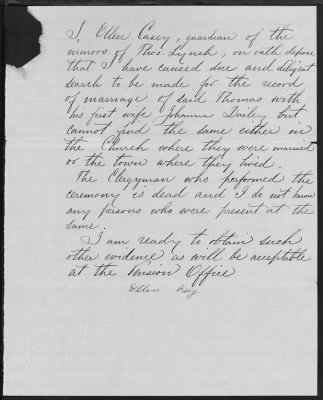 I, Ellen Casey, guardian of the
minors of Thos. Lynch, on oath depose
that I have caused due and diligent
search to be made for the record
of marriage of said Thomas with
his first wife Johanna Daily but
cannot find the same either in
the Church where they were married
or the town where they lived.
The Clergyman who performed the
ceremony is dead and I do not know
any persons who were present at the
same.
I am ready to obtain such
other evidence as will be acceptable
at the Pension Office
Ellen Casy